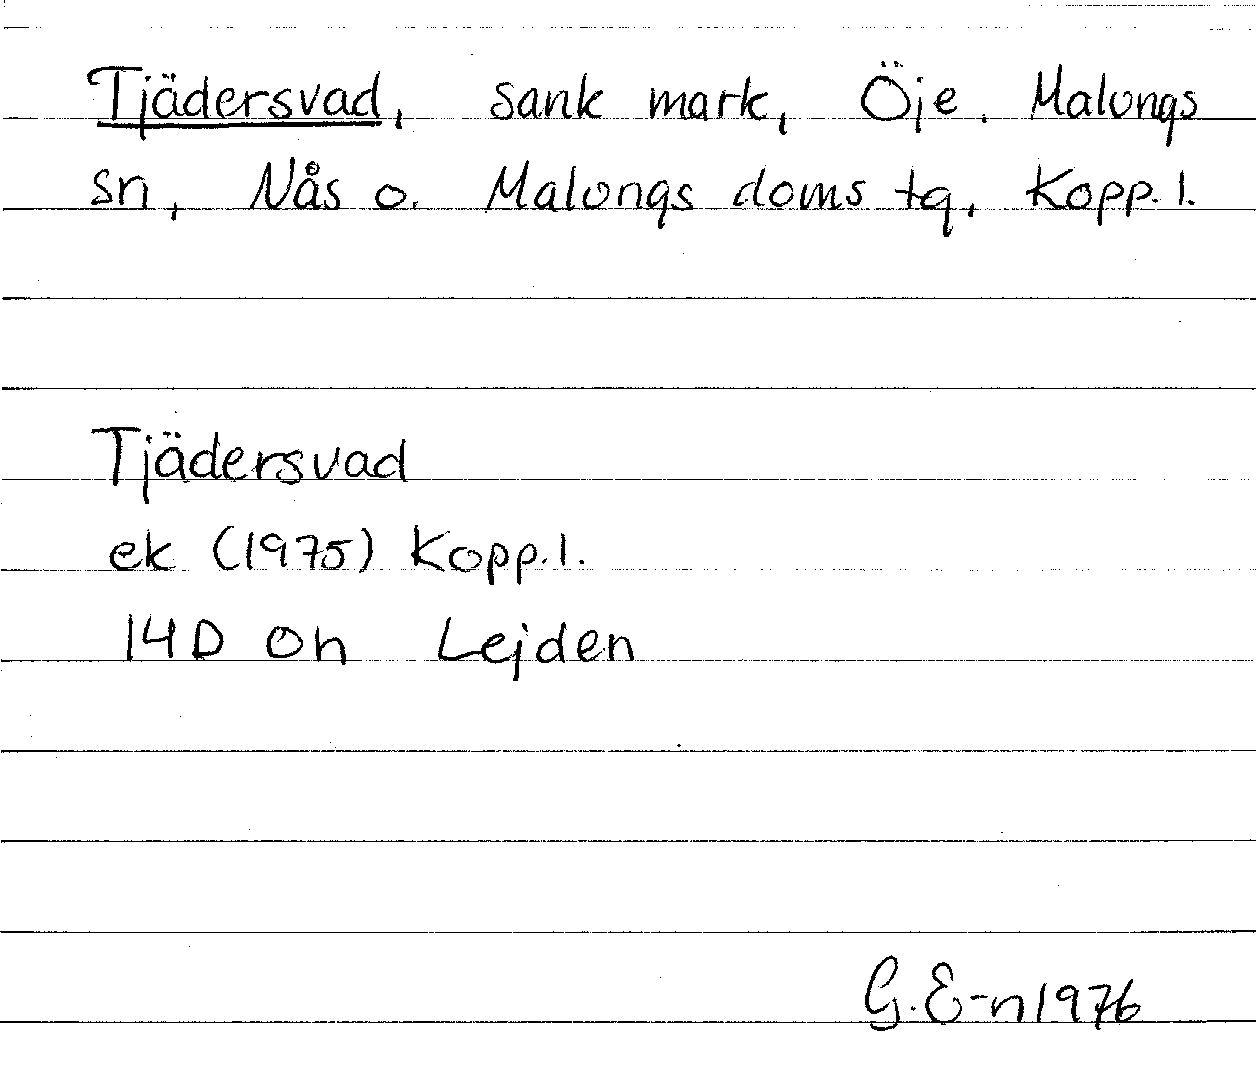 Tjädersvad, sank mark, Öje. Malungs
sn, Nås o. Malungs doms tg, Kopp. l.
Tjädersvad
ek (1975) Kopp. l.
14D 0h Lejden
G. E-n 1976